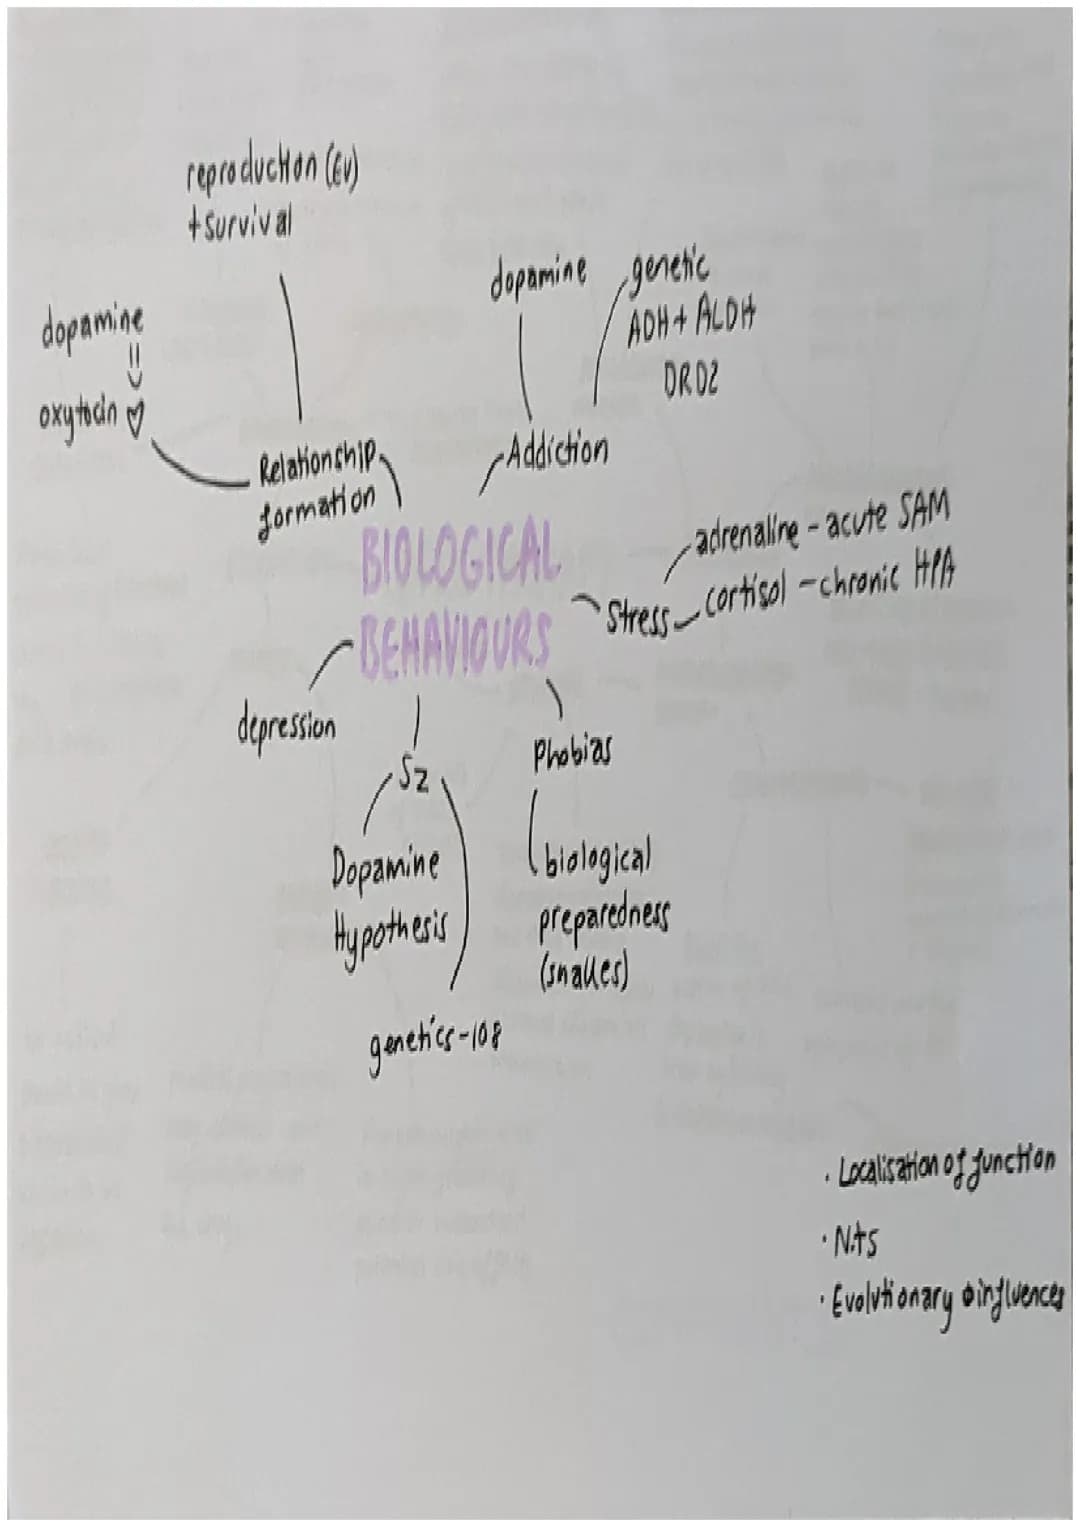 reproduction (EV)
+ survival
dopamine
oxytocin ♡
Relationship
formation
dopamine
genetic
ADH + ALDH
DRD2
Addiction
BIOLOGICAL
BEHAVIOURS
adrenaline - acute SAM
cortisol - chronic HPA
Stress
depression
Sz
Dopamine
Hypothesis
genetics - 108
Phobias
biological
preparedness
(snakes)
· Localisation of function
· Nts
· Evolutionary influences